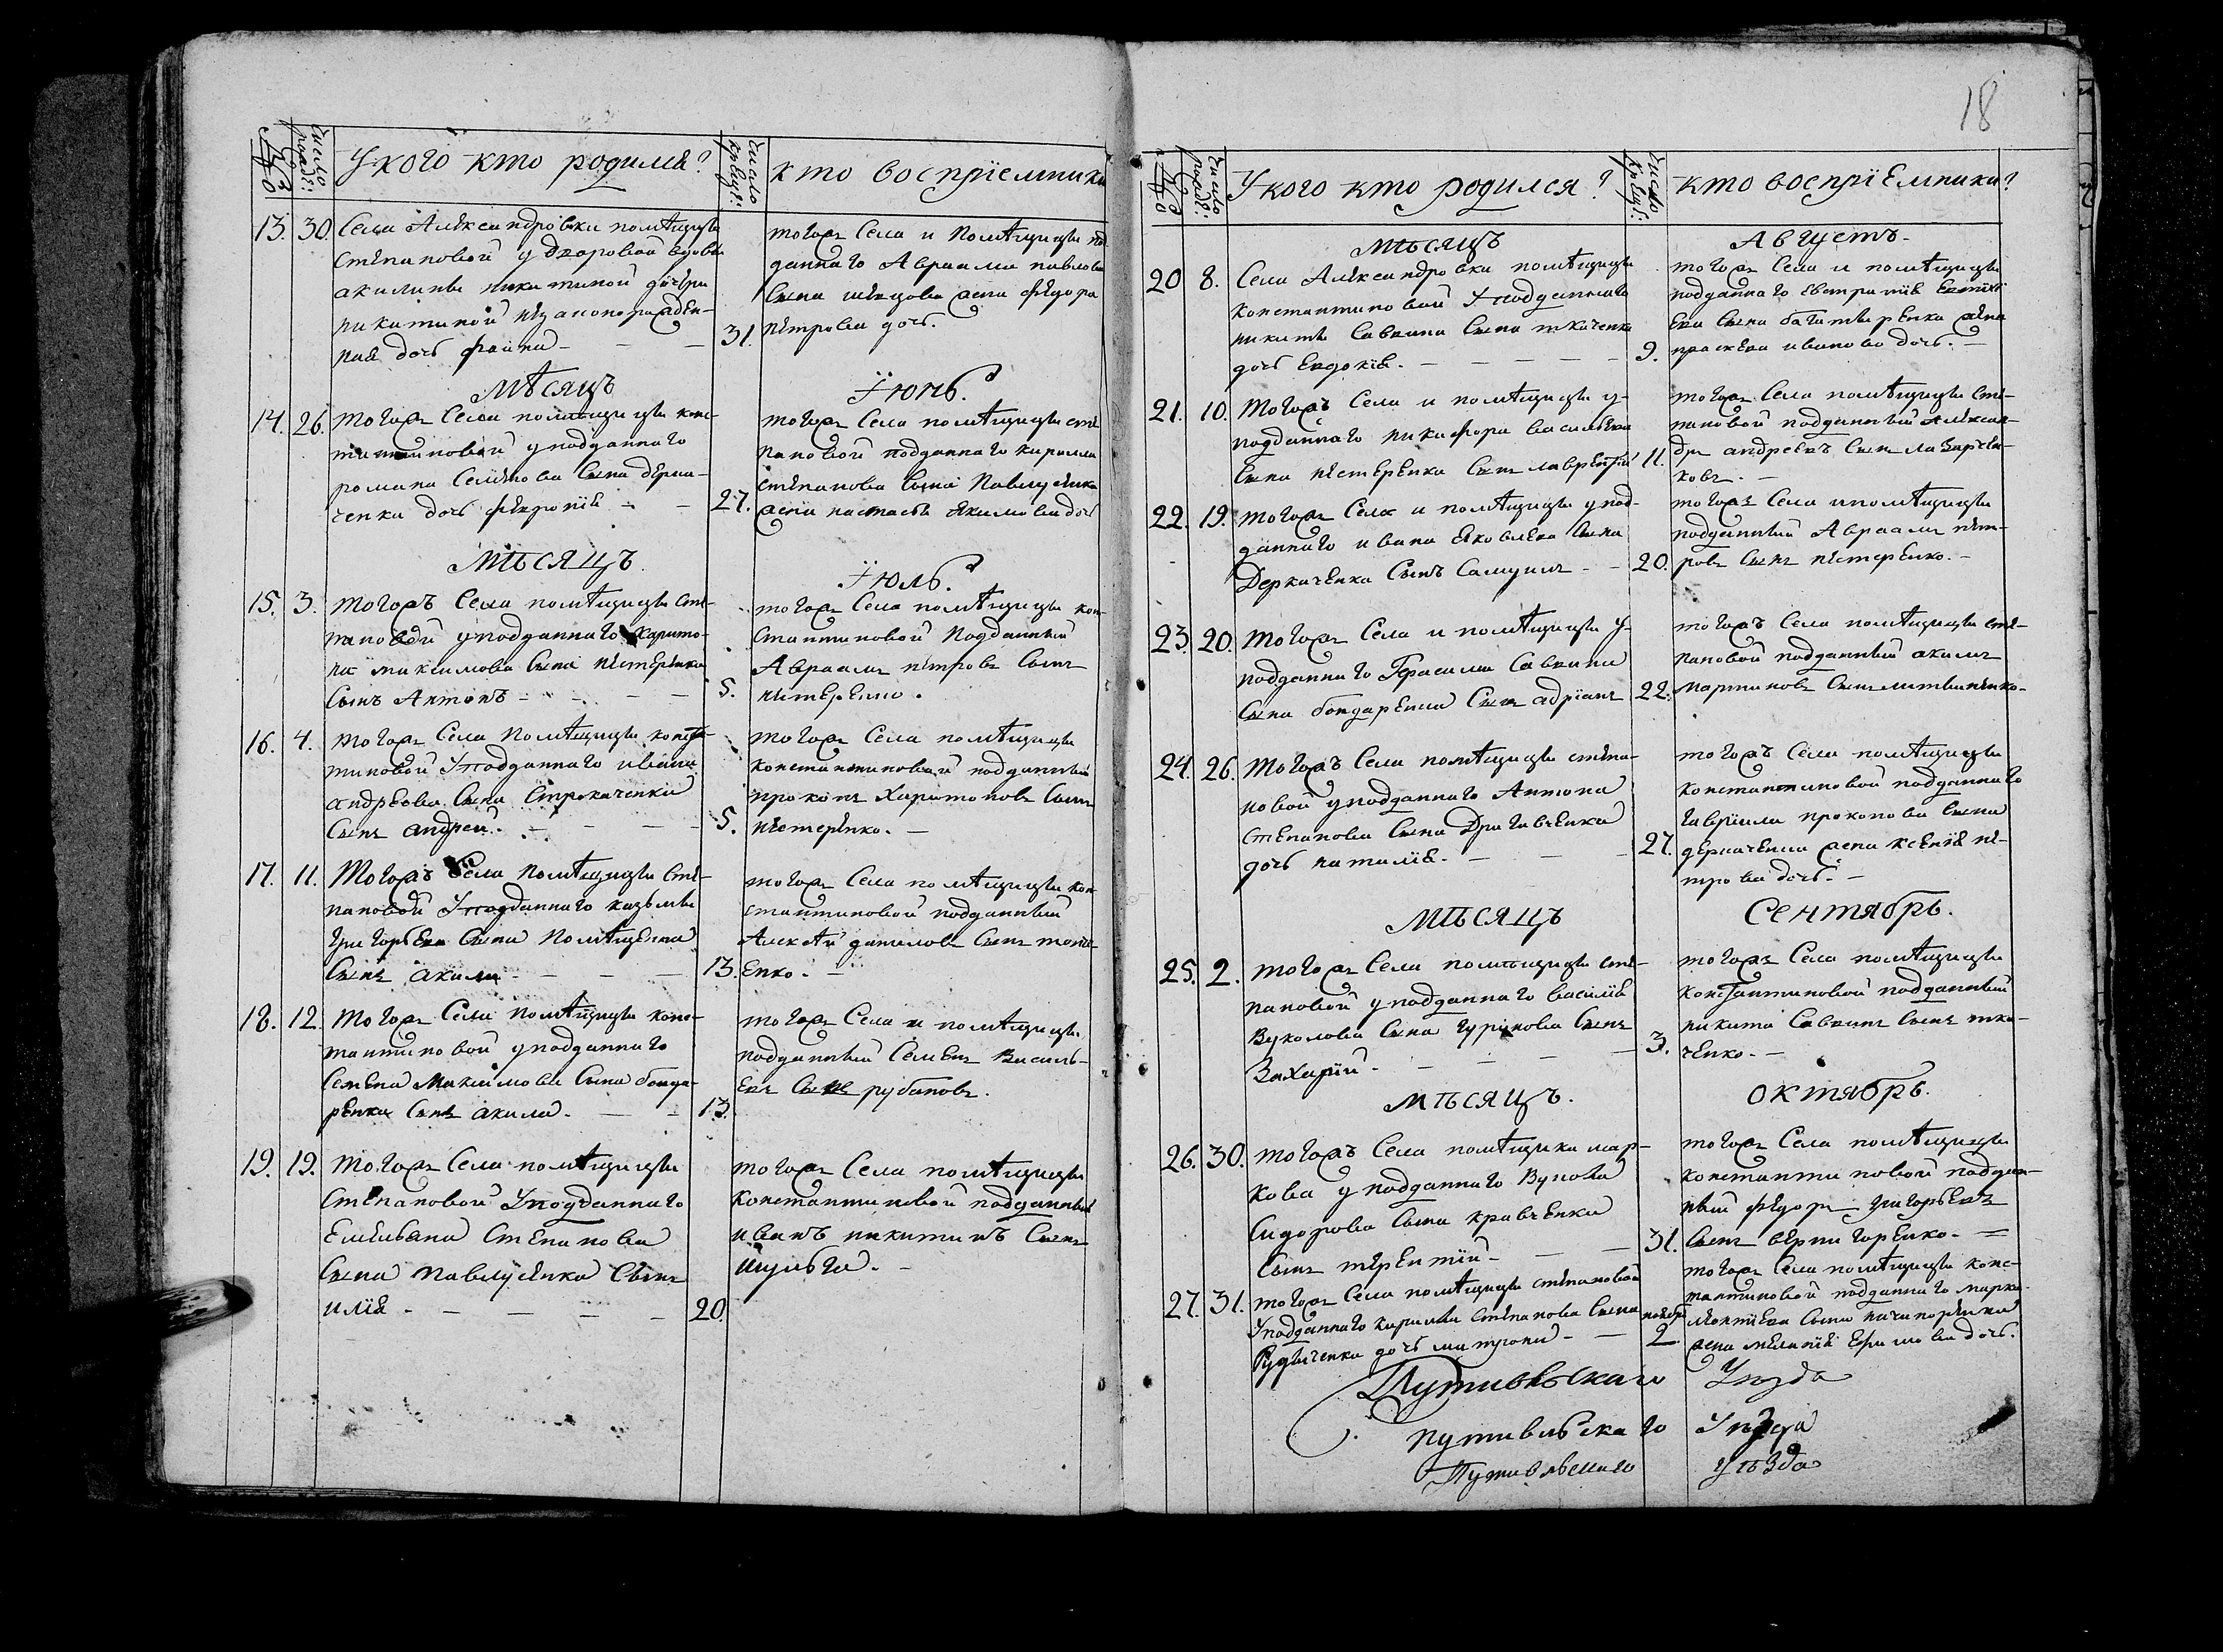 18
№
число рожд:
У кого кто родился?
число крещ:
кто воспрїемники
13. 30. Села Александровки помѣщицы
Степановой у дворовой вдовы
акилины никитиной дочери
никитиной незаконорожден-
ная дочь фаина
тогожъ Села и помѣщицы под
даннаго Авраама павлова
сына швецова жена федора
31. петрова дочь.
Мѣсяцъ
Їюнь.
14. 26. тогожъ Села помѣщицы конс-
тантиновой у подданнаго
романа Семенова сына
ченка дочь феврония
тогожъ Села помѣщицы сте
пановой подданнаго кирилла
степанова сына Павлусенка
27. жена настасья Якимова дочь
Мѣсяцъ.
Їюль.
15. 3. тогожъ Села помѣщицы сте-
пановой у подданнаго харито-
на максимова сына нестеренка
Сынъ Антонъ
тогожъ Села помѣщицы кон-
стантиновой подданный
Авраамъ петровъ сынъ
5. нестеренко.
16. 4. тогожъ Села помѣщицы конста-
тиновой У подданнаго ивана
андреева сына
сынъ андрей.
тогожъ Села помѣщицы
константиновой подданный
прокопъ Харитоновъ сынъ
5. нестеренко.
17. 11. Тогожъ Села помѣщицы сте-
пановой У подданнаго казьмы
григорьева сына
сынъ акимъ
тогожъ Села помѣщицы кон
стантиновой подданный
Алексѣй даниловъ сынъ
13. енко.
18. 12. тогожъ Села помѣщицы конс-
тантиновой у подданнаго
Семена Максимова сына бонда-
ренка сынъ акила.
тогожъ Села и помѣщицы
подданный Семенъ Василь-
евъ сынъ рубановъ.
13.
19. 19. тогожъ Села помѣщицы
Степановой У подданнаго
Емельяна Степанова
сына Павлусенка сынъ
илїя
тогожъ Села помѣщицы
константиновой подданный
иванъ никитинъ сынъ
шульга.
20.
№
число рожд:
У кого кто родился?
число крещ:
кто воспрїемники?
мѣсяцъ
Августъ.
20 8. Села Александровки помѣщицы
константиновой У подданнаго
никиты Саввина сына ткаченка
дочь Евдокїя.
тогожъ Села и помѣщицы
подданнаго
ева сына жена
9. праскева иванова дочь.
21. 10. Тогожъ Села и помѣщицы у-
подданнаго никифора васильева
сына нестеренка сынъ лаврентїй
тогожъ Села помѣщицы сте-
пановой подданный Алексан-
11. дръ андреевъ сынъ
ковъ.
22. 19. тогожъ Села и помѣщицы у под-
даннаго ивана Яковлева сына
Деркаченка Сынъ Самуилъ
тогожъ Села и помѣщицы
подданный Авраамъ пет-
20. ровъ сынъ нестеренко.
23. 20. тогожъ Села и помѣщицы у-
подданнаго Герасима Саввина
сына бондаренка сынъ адрїанъ
тогожъ Села помѣщицы сте-
пановой подданный акимъ
22. мартиновъ сынъ литвиненко.
24. 26. тогожъ Села помѣщицы степа-
новой у подданнаго Антона
степанова сына
дочь наталїя.
тогожъ Села помѣщицы
константиновой подданнаго
гаврїила прокопова сына
27. жена ксенїя пе-
трова дочь.
мѣсяцъ
Сентябрь.
25. 2. тогожъ Села помѣщицы сте-
пановой у подданнаго василїя
Вуколова сына гуринова сынъ
Захарїй.
тогожъ Села помѣщицы
константиновой подданный
никита Саввинъ сынъ тка-
3. ченко.
мѣсяцъ.
октябрь.
26. 30. тогожъ Села помѣщика мар-
кова у подданнаго Вукола
Сидорова сына кравченка
сынъ терентїй
тогожъ Села помѣщицы
константиновой поддан-
ный федоръ григорьевъ
31. сынъ вернигоренко.
27. 31. тогожъ Села помѣщицы степановой
У подданнаго кирилы степанова сына
дочь матрона
тогожъ Села помѣщицы конс-
тантиновой подданнаго марка
ноября сына ничипоренка
2 жена меланїя Ефимова дочь.
Путивльскаго Уѣзда
путивльскаго Уѣзда
Путивльскаго уѣзда